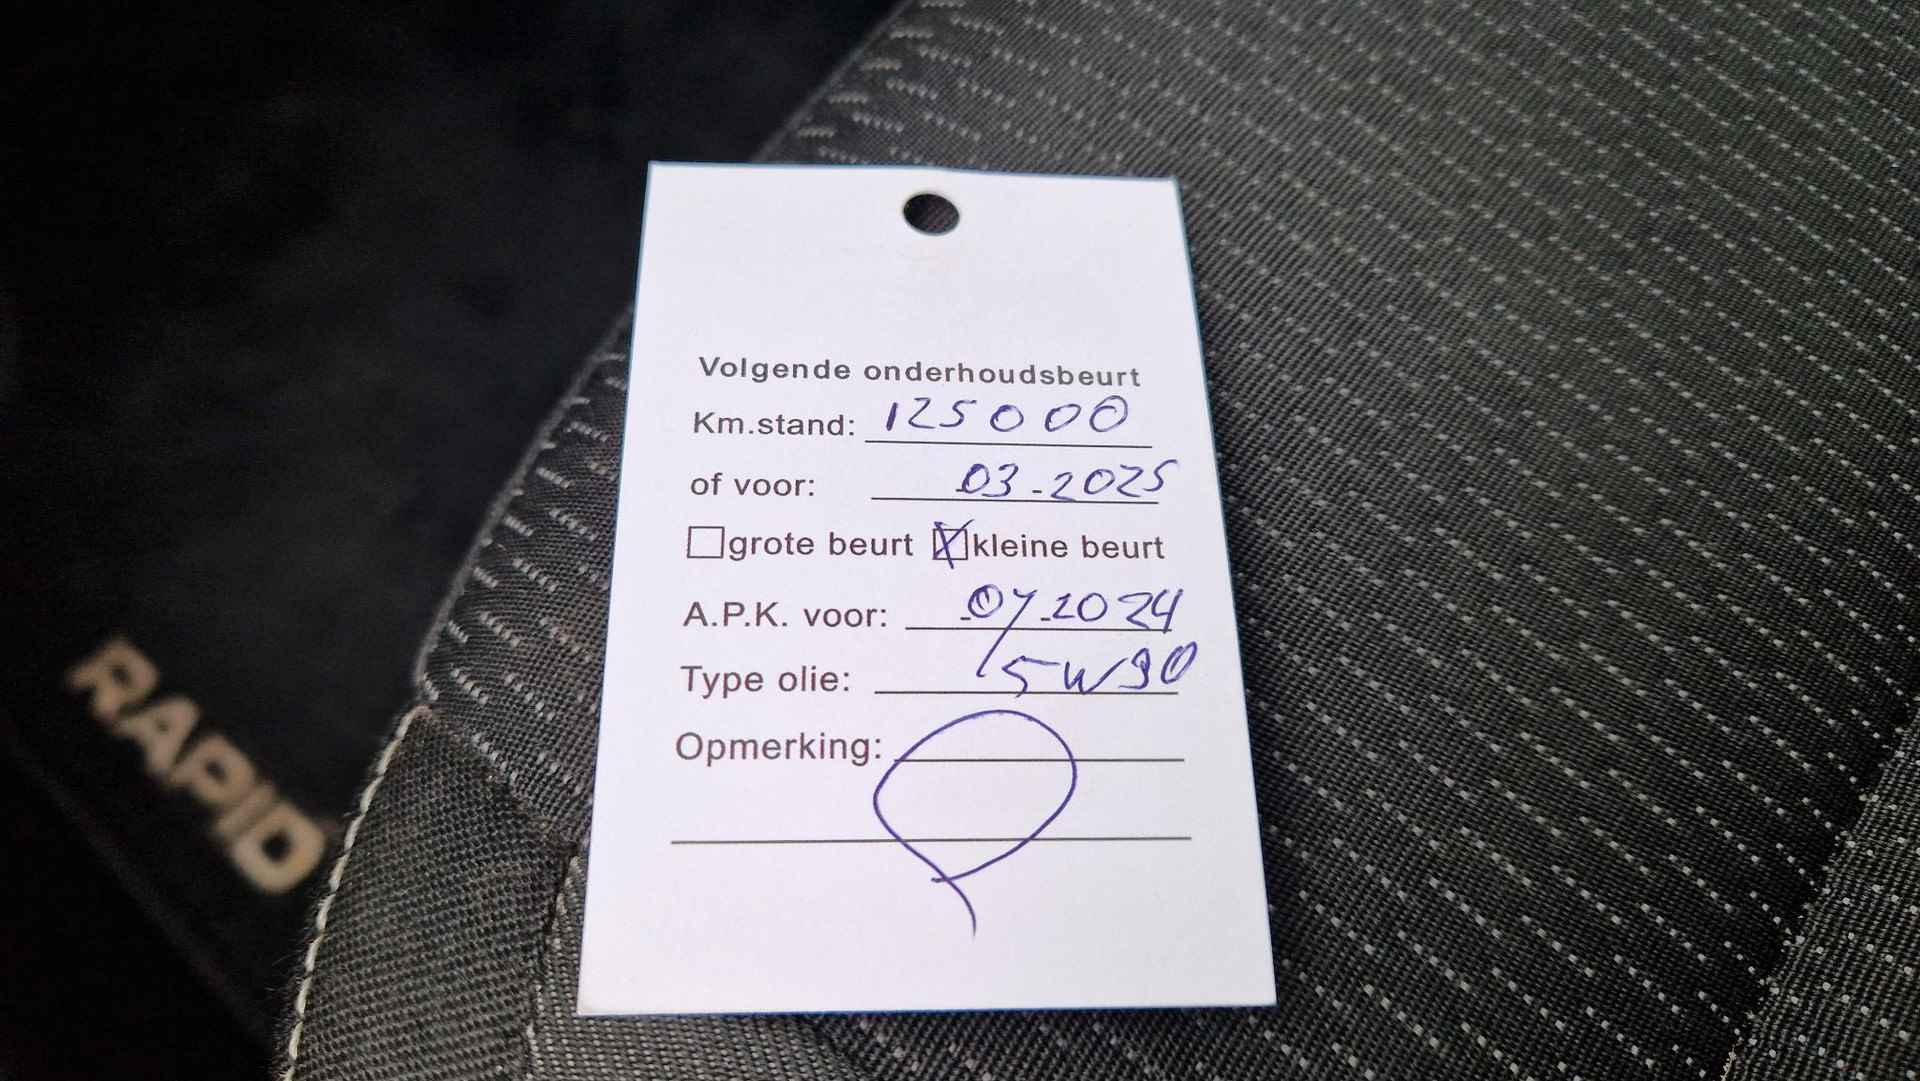 Volgende onderhoudsbeurt
Km.stand: 125000
of voor: 03-2025
grote beurt kleine beurt
A.P.K. voor: 07-2024
Type olie: 5W30
Opmerking:
RAPID